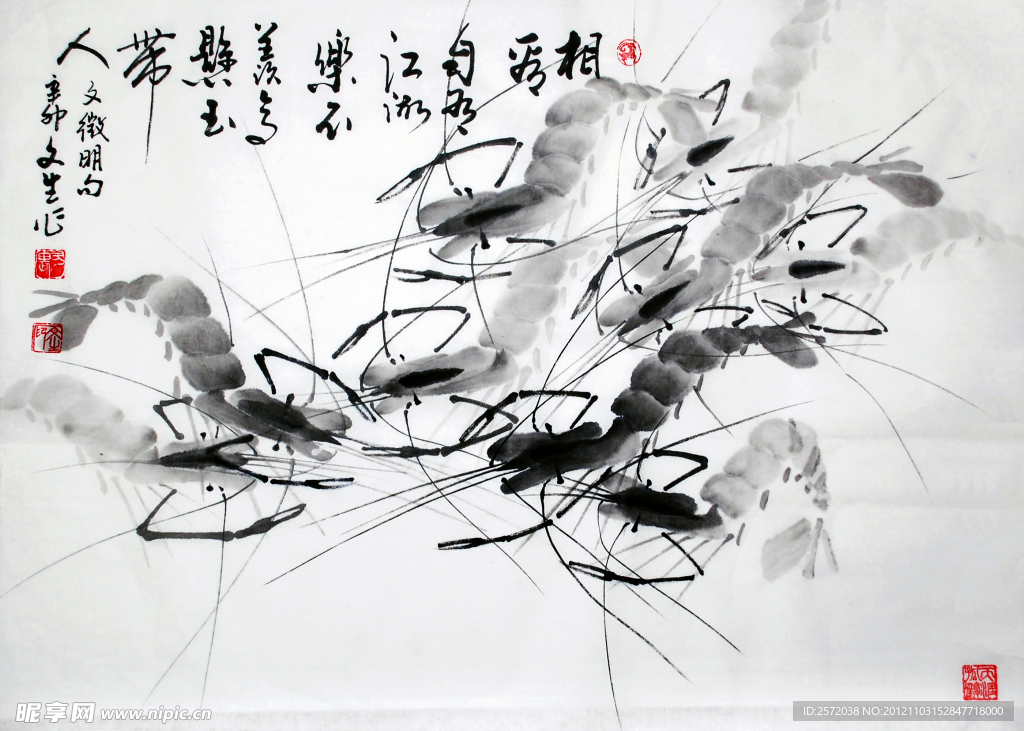 相
看
自有
江湖
樂不
羨高
懸玉
帶
人
文徵明句
辛卯文生作
昵享网 www.nipic.cn
ID:2572038 NO:20121103152847718000